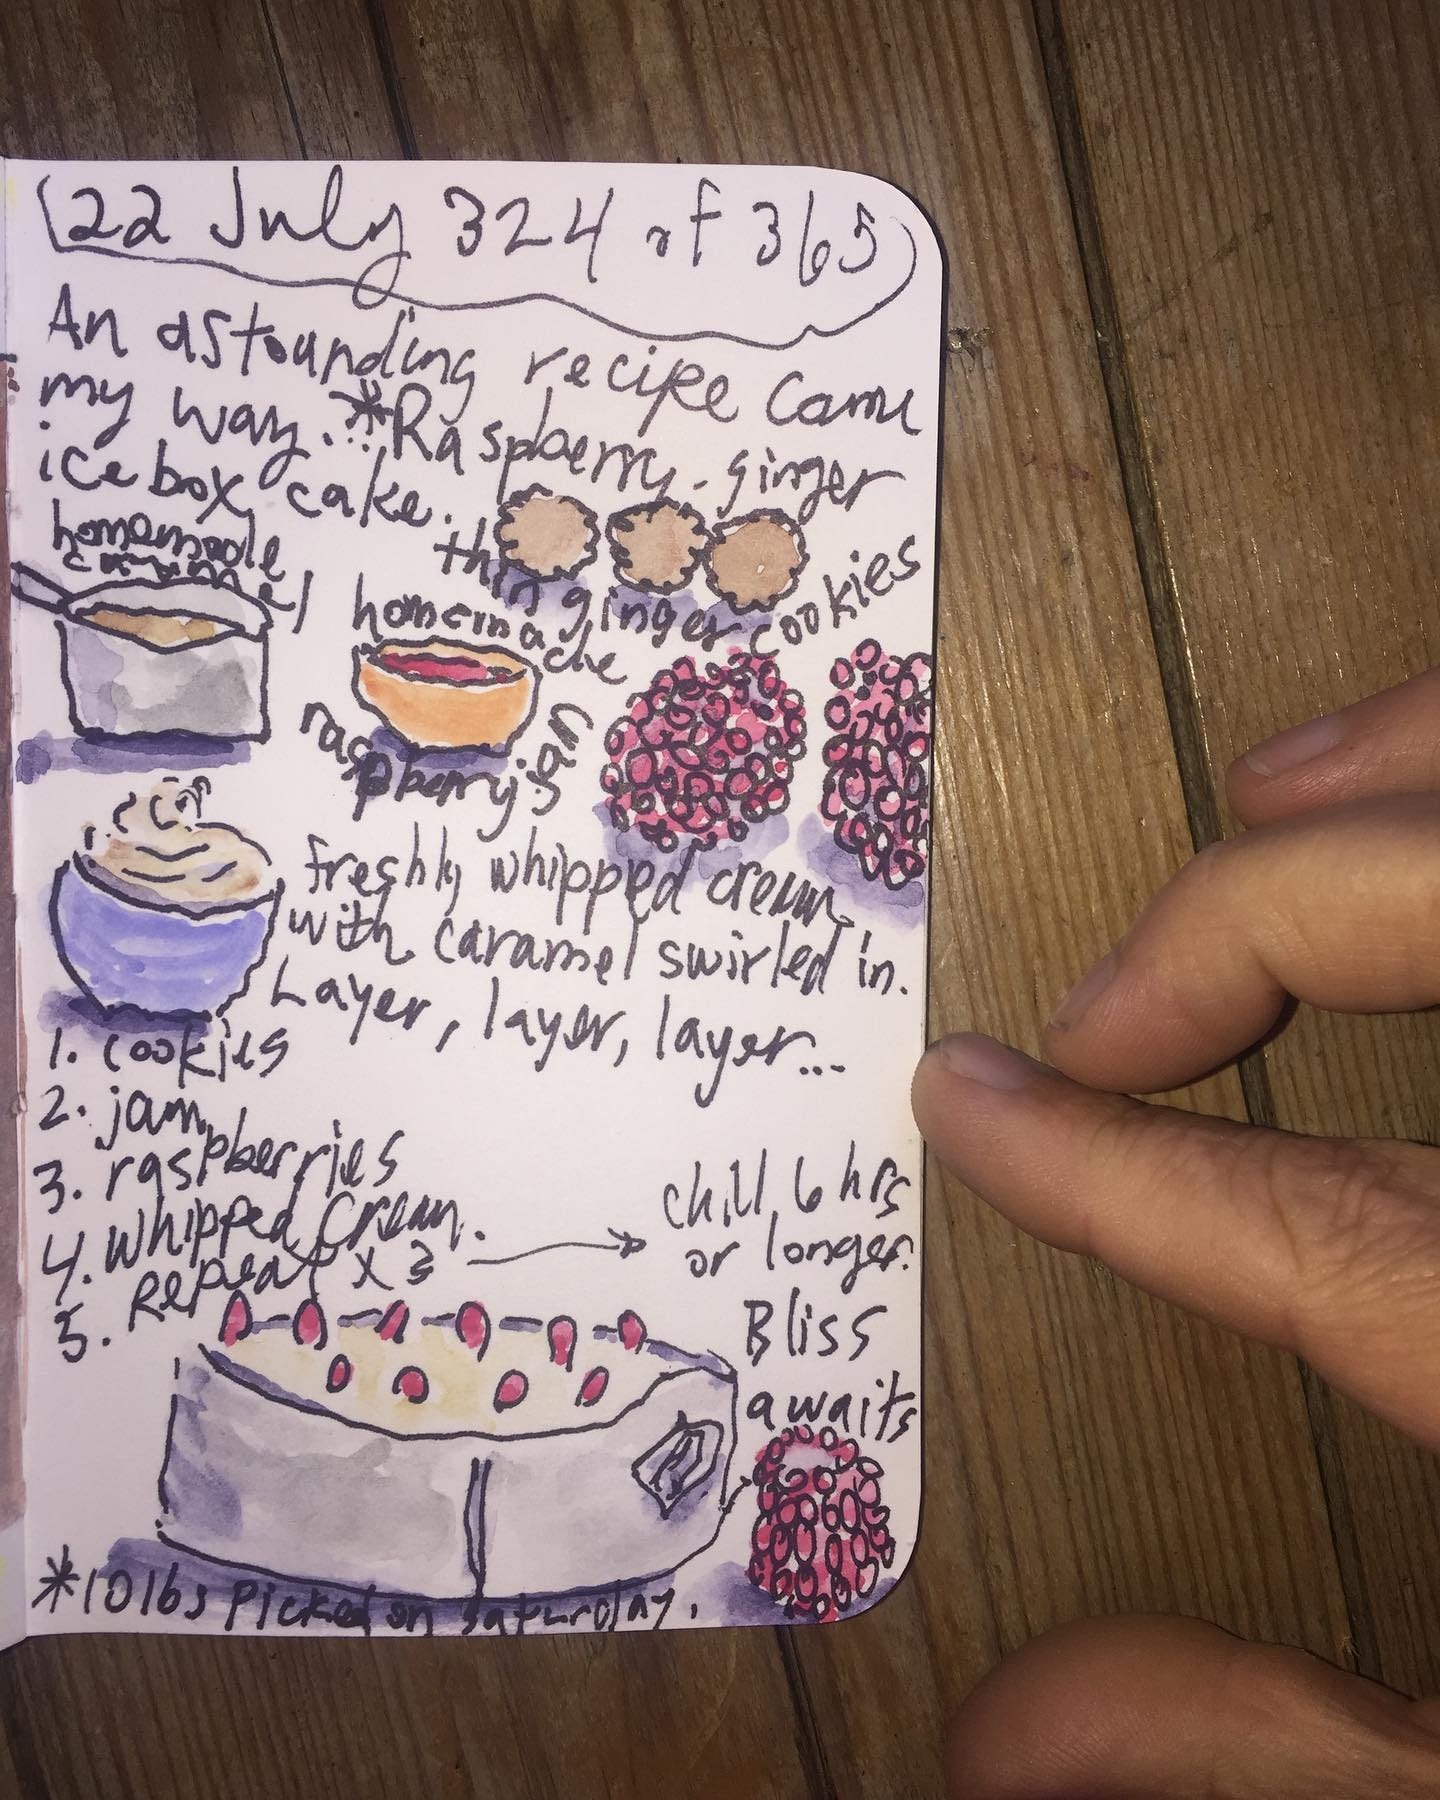 22 July 324 of 365
An astounding recipe came
my way... *Raspberry-ginger
icebox cake.
homemade
caramel
thin ginger cookies
homemade
raspberry jam
freshly whipped cream
with caramel swirled in.
Layer, layer, layer...
1. cookies
2. jam
3. raspberries
4. whipped cream.
5. Repeat x 3
chill 6 hrs
or longer.
Bliss
awaits
*10 lbs picked on Saturday.